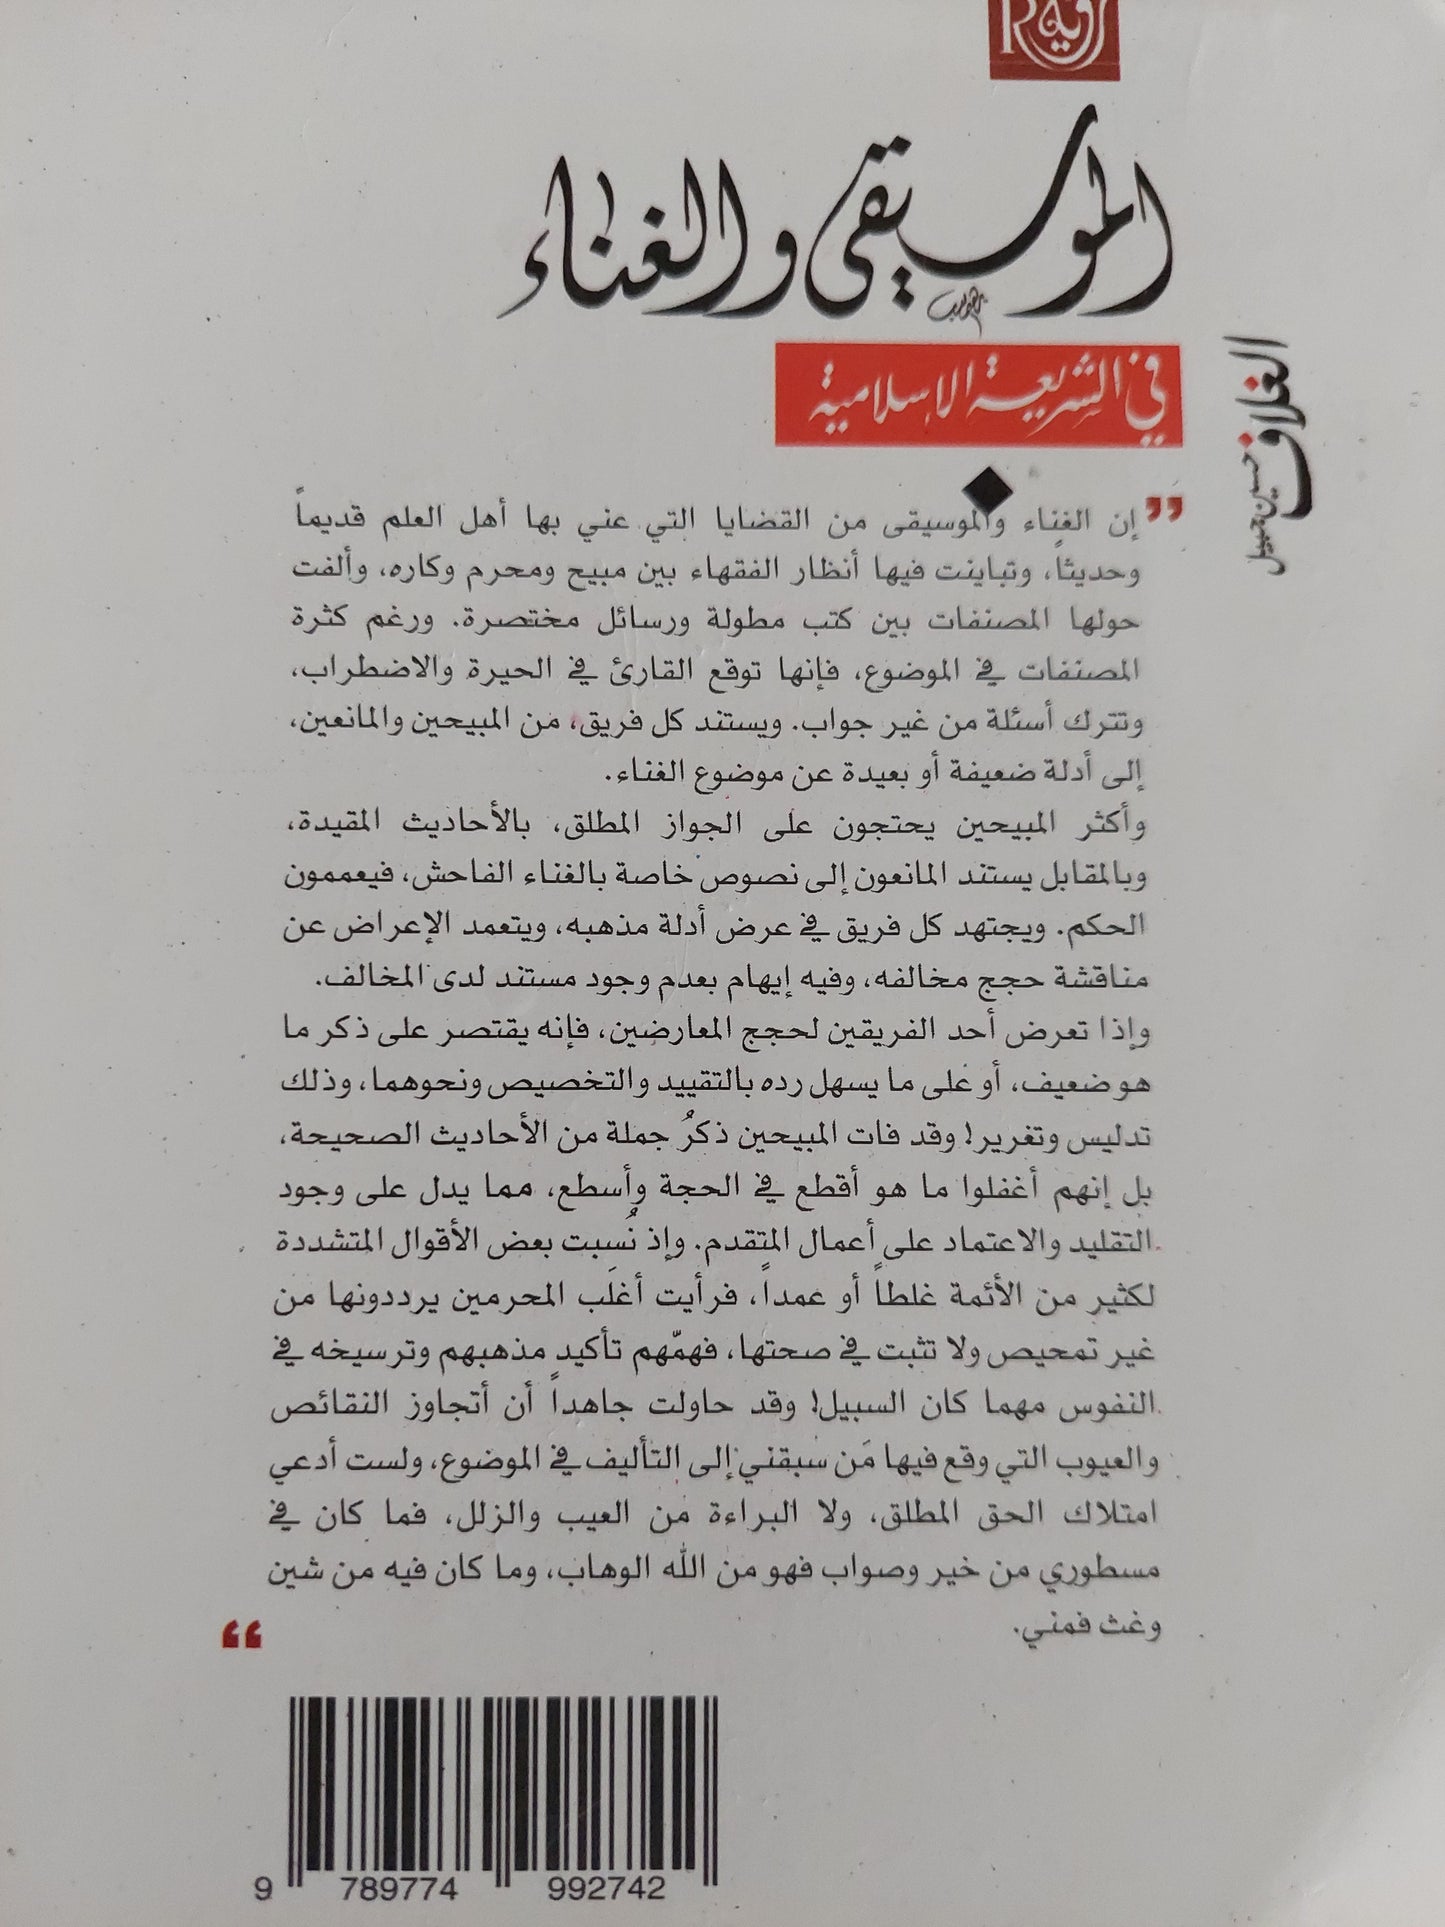 رؤية
الموسيقى والغناء
في الشريعة الإسلامية
الغلاف
حسين جبيل
" إن الغناء والموسيقى من القضايا التي عني بها أهل العلم قديماً
وحديثاً، وتباينت فيها أنظار الفقهاء بين مبيح ومحرم وكاره، وألفت
حولها المصنفات بين كتب مطولة ورسائل مختصرة. ورغم كثرة
المصنفات في الموضوع، فإنها توقع القارئ في الحيرة والاضطراب،
وتترك أسئلة من غير جواب. ويستند كل فريق، من المبيحين والمانعين،
إلى أدلة ضعيفة أو بعيدة عن موضوع الغناء.
وأكثر المبيحين يحتجون على الجواز المطلق، بالأحاديث المقيدة،
وبالمقابل يستند المانعون إلى نصوص خاصة بالغناء الفاحش، فيعممون
الحكم. ويجتهد كل فريق في عرض أدلة مذهبه، ويتعمد الإعراض عن
مناقشة حجج مخالفه، وفيه إيهام بعدم وجود مستند لدى المخالف.
وإذا تعرض أحد الفريقين لحجج المعارضين، فإنه يقتصر على ذكر ما
هو ضعيف، أو على ما يسهل رده بالتقييد والتخصيص ونحوهما، وذلك
تدليس وتغرير! وقد فات المبيحين ذكرُ جملة من الأحاديث الصحيحة،
بل إنهم أغفلوا ما هو أقطع في الحجة وأسطع، مما يدل على وجود
التقليد والاعتماد على أعمال المتقدم. وإذ نُسبت بعض الأقوال المتشددة
لكثير من الأئمة غلطاً أو عمداً، فرأيت أغلَب المحرمين يرددونها من
غير تمحيص ولا تثبت في صحتها، فهمّهم تأكيد مذهبهم وترسيخه في
النفوس مهما كان السبيل! وقد حاولت جاهداً أن أتجاوز النقائص
والعيوب التي وقع فيها مَن سبقني إلى التأليف في الموضوع، ولست أدعي
امتلاك الحق المطلق، ولا البراءة من العيب والزلل، فما كان في
مسطوري من خير وصواب فهو من الله الوهاب، وما كان فيه من شين
وغث فمني. "
9 789774 992742